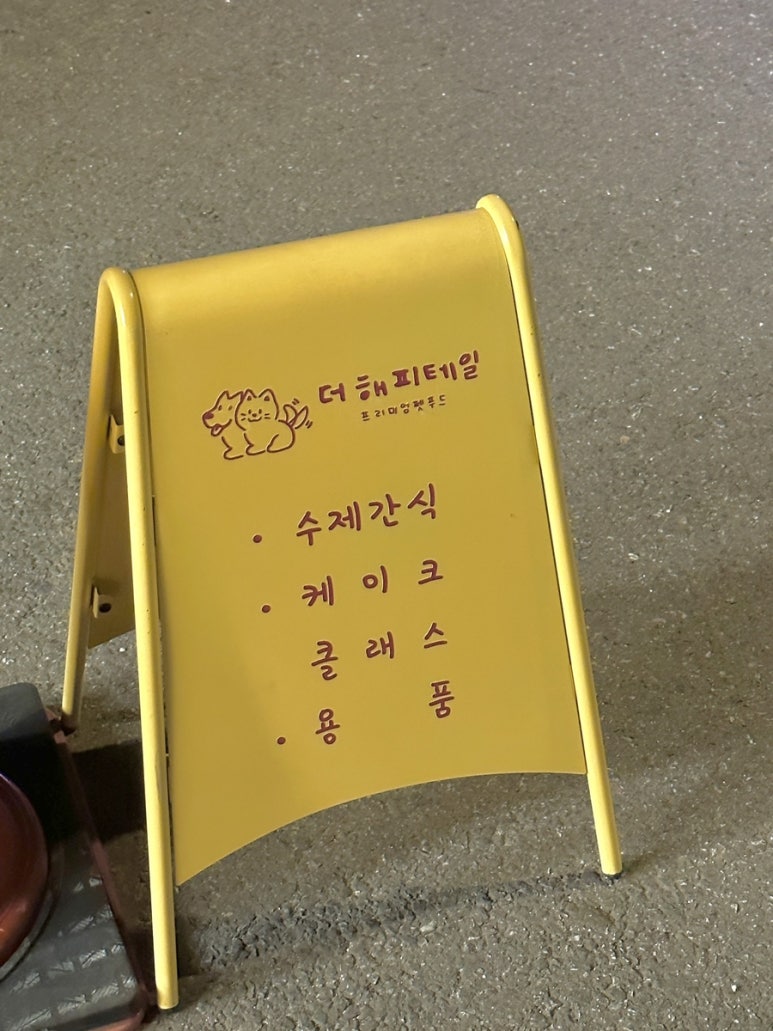 더 해피테일
프리미엄펫푸드
• 수제간식
• 케이크
클래스
• 용 품